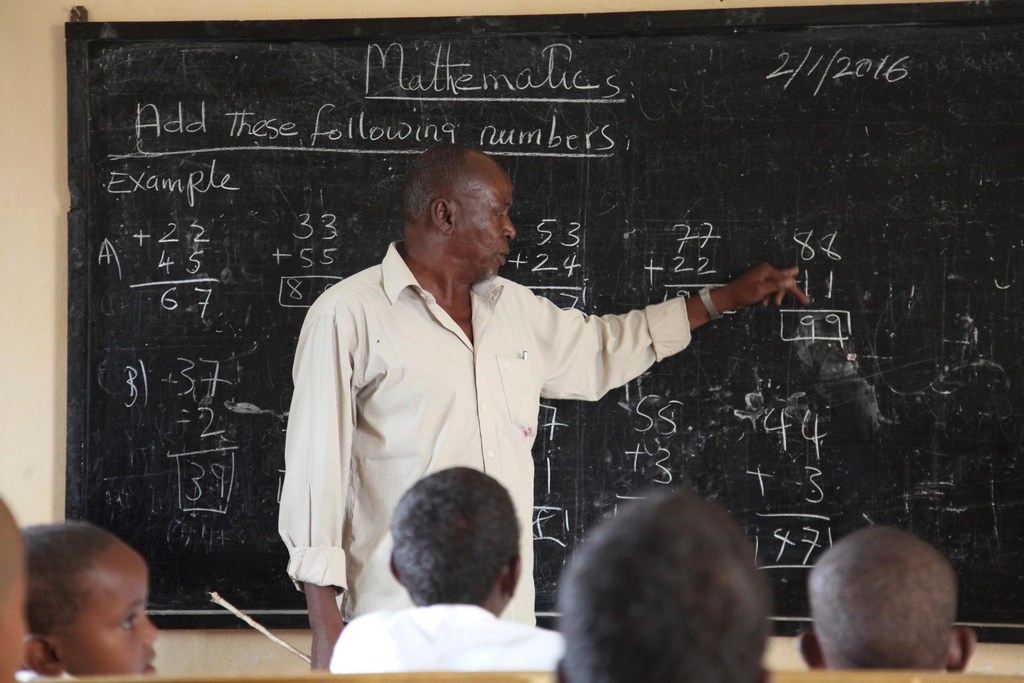 Mathematics.
2/1/2016
Add these following numbers.
Example
A)
+22
45
67
33
+55
53
+24
77
+22
88
11
99
B)
37
2
39
55
+3
44
+ 3
47